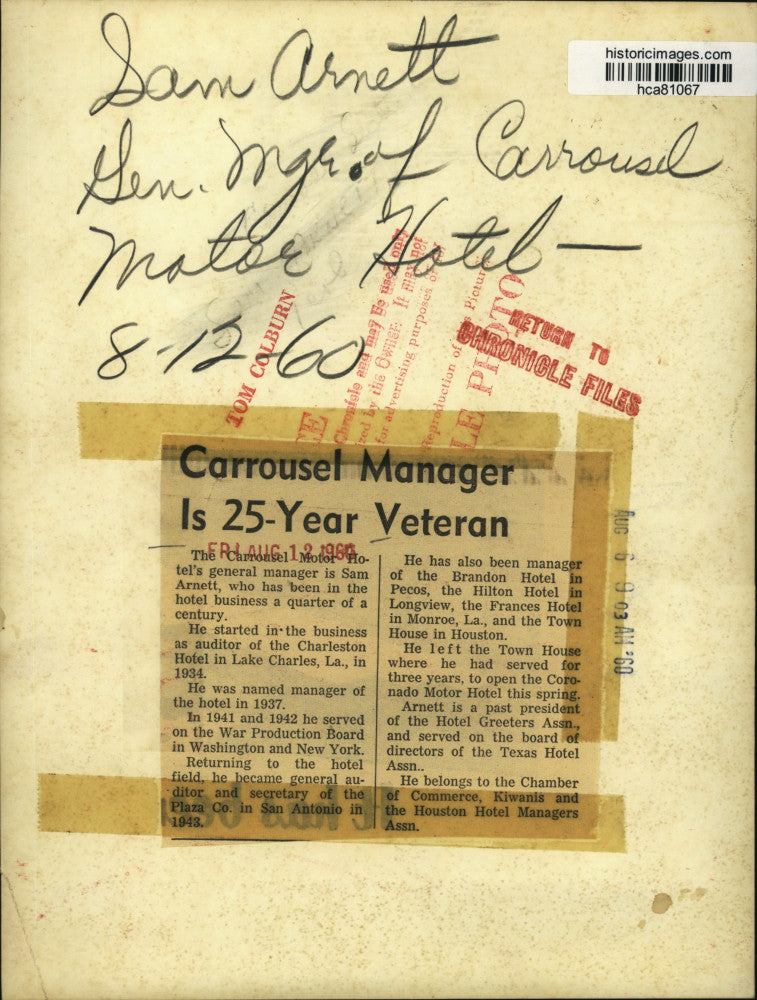 historicimages.com
hca81067
Sam Arnett
Gen. Mgr. of Carrousel
Motor Hotel —
8-12-60
TOM COLBURN
Chronicle and may be used only
zed by the Owner. It may not
for advertising purposes or
Reproduction of
s Pictur
LE PHOTO
RETURN TO
CHRONICLE FILES
Carrousel Manager
Is 25-Year Veteran
FRI AUG 12 1960
The Carrousel Motor Ho-
tel's general manager is Sam
Arnett, who has been in the
hotel business a quarter of a
century.
He started in the business
as auditor of the Charleston
Hotel in Lake Charles, La., in
1934.
He was named manager of
the hotel in 1937.
In 1941 and 1942 he served
on the War Production Board
in Washington and New York.
Returning to the hotel
field, he became general au-
ditor and secretary of the
Plaza Co. in San Antonio in
1943.
He has also been manager
of the Brandon Hotel in
Pecos, the Hilton Hotel in
Longview, the Frances Hotel
in Monroe, La., and the Town
House in Houston.
He left the Town House
where he had served for
three years, to open the Coro-
nado Motor Hotel this spring.
Arnett is a past president
of the Hotel Greeters Assn.,
and served on the board of
directors of the Texas Hotel
Assn..
He belongs to the Chamber
of Commerce, Kiwanis and
the Houston Hotel Managers
Assn.
AUG 6 9 03 AM '60